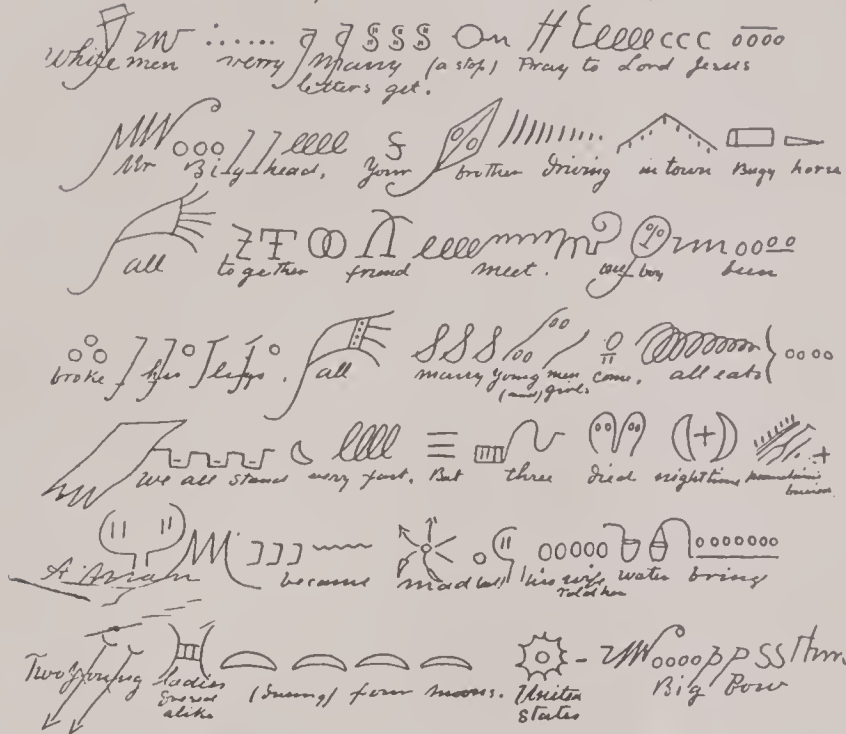 White men verry many (a stop) Pray to Lord Jesus
letters get.
Mr Big head, Your brother driving in town Bugy horse
all together friend meet. boy
broke his legs. all many young men come, all eats
(and) girls
We all stand very fast. But three died nighttime
A man became mad his wife water bring
told her
Two young ladies (during) four moons. United Big Bow
States
alike